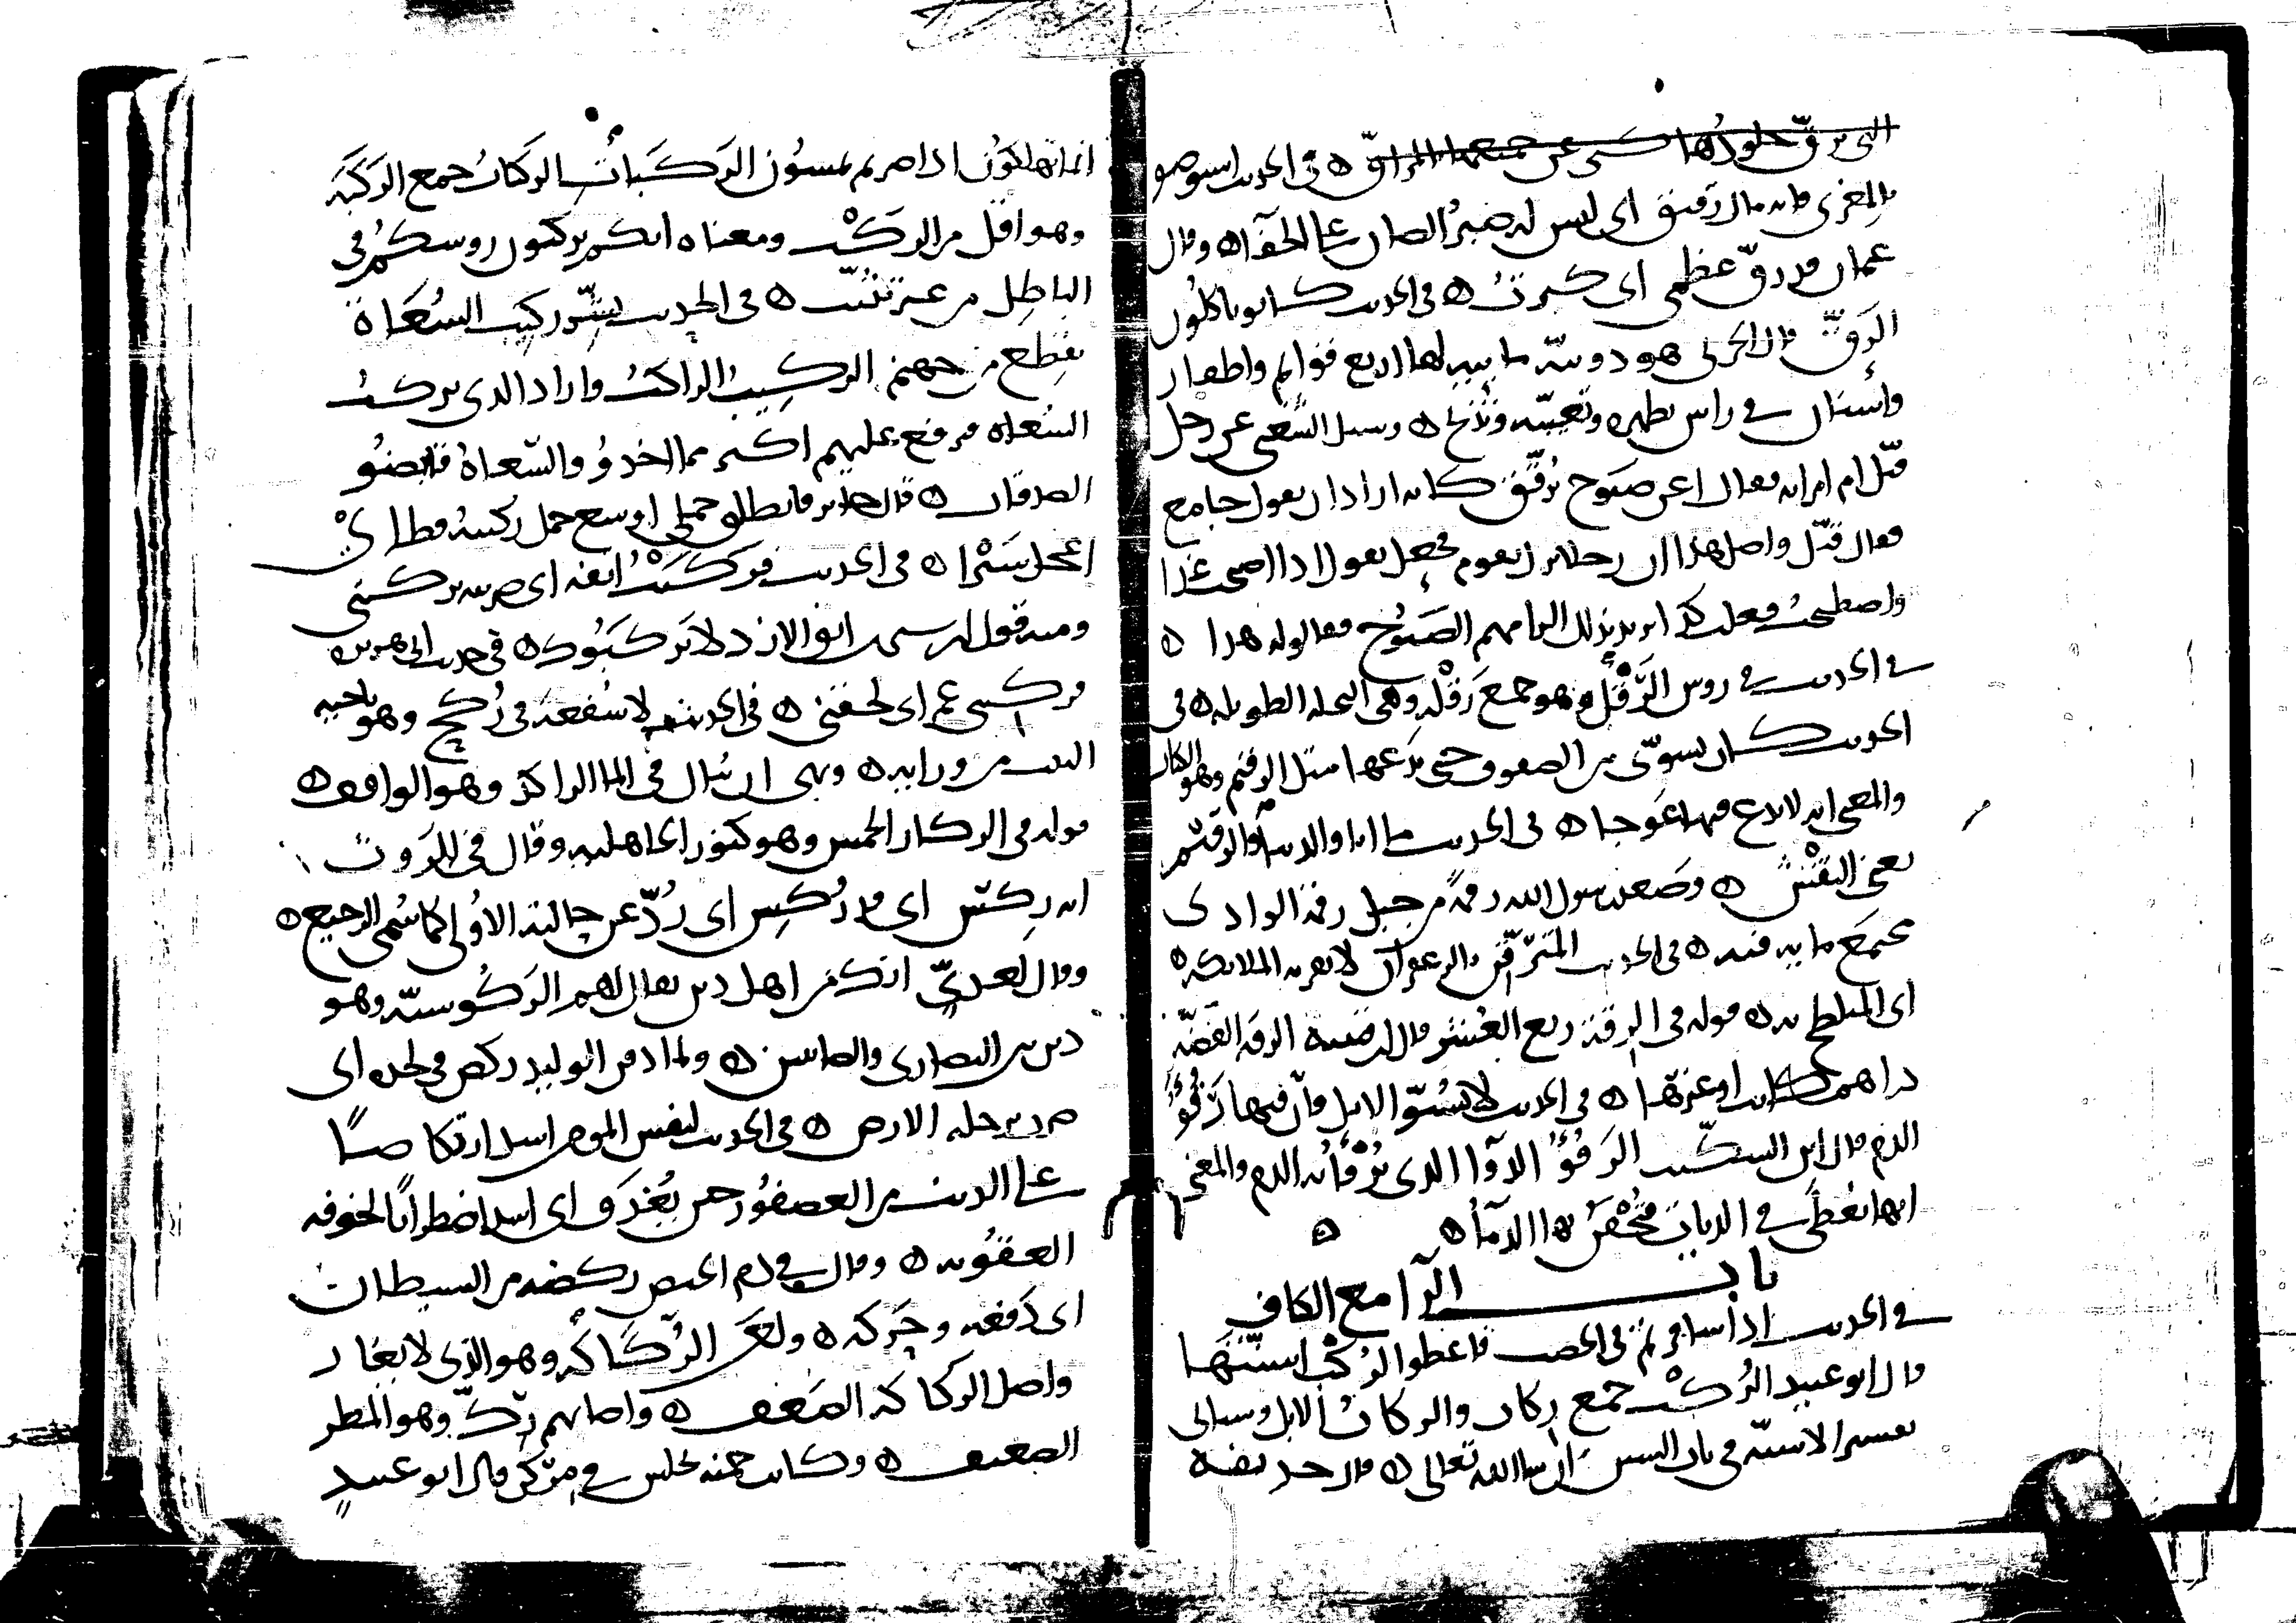 التي ترق جلودها كني عن جميعها بالمراق ه في الحديث استوصوا
بالمعزى فانه مال رقيق اي ليس له صبر الضان على الجفاء ه وقال
عثمان قد رق عظمي اي كبرت ه في الحديث كانوا ياكلون
الرق قال الحربي هو دويبة مائية لها اربع قوائم واظفار
واسنان في راس تظهره وتغيبه وتذبح ه وسئل الشعبي عن رجل
قبل ام امراته فقال اعن صبوح ترقق كانه اراد ان يقول جامع
فقال قبل واصل هذا ان رجلا نزل بقوم فجعل يقول اذا اصبحت غدا
واصطبحت فعلت كذا يريد بذلك الزامهم الصبوح فقالوا له هذا ه
في الحديث في روس الرقل وهو جمع رقلة وهي النخلة الطويلة ه في
الحديث كان يسوي بين الصفوف حتى يدعها مثل الرقيم وهو الكتاب
والمعنى انه لا يدع فيها عوجا ه في الحديث ما انا والدنيا والرقم
يعني النقش ه وصعد رسول الله رقمة من جبل رقمة الوادي
مجتمع مائه فيه ه في الحديث المترقن بالزعفران لا تقربه الملائكة ه
اي المتلطخ به ه قوله في الرقة ربع العشر قال ابن قتيبة الرقة الفضة
دراهم كانت او غيرها ه في الحديث لا تسبوا الابل فان فيها رقوء
الدم قال ابن السكيت الرقوء الدواء الذي يرقأ به الدم والمعنى
انها تعطى في الديات فتحقن بها الدماء ه ه
باب الراء مع الكاف
في الحديث اذا سافرتم في الخصب فاعطوا الركب اسنتها
قال ابو عبيد الركب جمع ركاب والركاب الابل وسياتي
تفسير الاسنة في باب السين ان شاء الله تعالى ه قال حذيفة
انما تهلكون اذا صرتم تمشون الركبات الركبات جمع الركبة
وهو اقل من الركب ومعناه انكم تركبون روسكم في
الباطل من غير تثبت ه في الحديث بشر ركيب السعاة
بقطع من جهنم الركيب الراكب واراد الذي يركب
السعاة فيرفع عليهم اكثر مما اخذوا والسعاة قابضو
الصدقات ه قال جابر فانطلق جملي اوسع جمل ركبته قط اي
اعجل سيرا ه في الحديث فركبت انفه اي ضربته بركبتي
ومنه قول ابن سيرين اتق الازد لا يركبوك ه في حديث ابي هريرة
فركبني عمر اي لحقني ه في الحديث لا شفعة في ركح وهو ناحية
البيت من ورائه ه ونهى ان يبال في الماء الراكد وهو الواقف ه
قوله في الركاز الخمس وهو كنوز الجاهلية وقال في الروث
انه ركس اي قد ركس اي رد عن حالته الاولى كما سمي الرجيع ه
وقال لعدي انك من اهل دين يقال لهم الركوسية وهو
دين بين النصارى والصابئين ه ولما دفن الوليد ركض في لحده اي
ضرب برجله الارض ه في الحديث لنفس المومن اشد ارتكاضا
على الذنب من العصفور حين يغدف اي اشد اضطرابا لخوفه
العقوبة ه وقال في دم الحيض ركضة من الشيطان
اي دفعة وحركة ه ولعن الركاكة وهو الذي لا يغار
واصل الركاكة الضعف ه واصابهم رك وهو المطر
الضعيف ه وكانت حمنة تجلس في مركن قال ابو عبيد